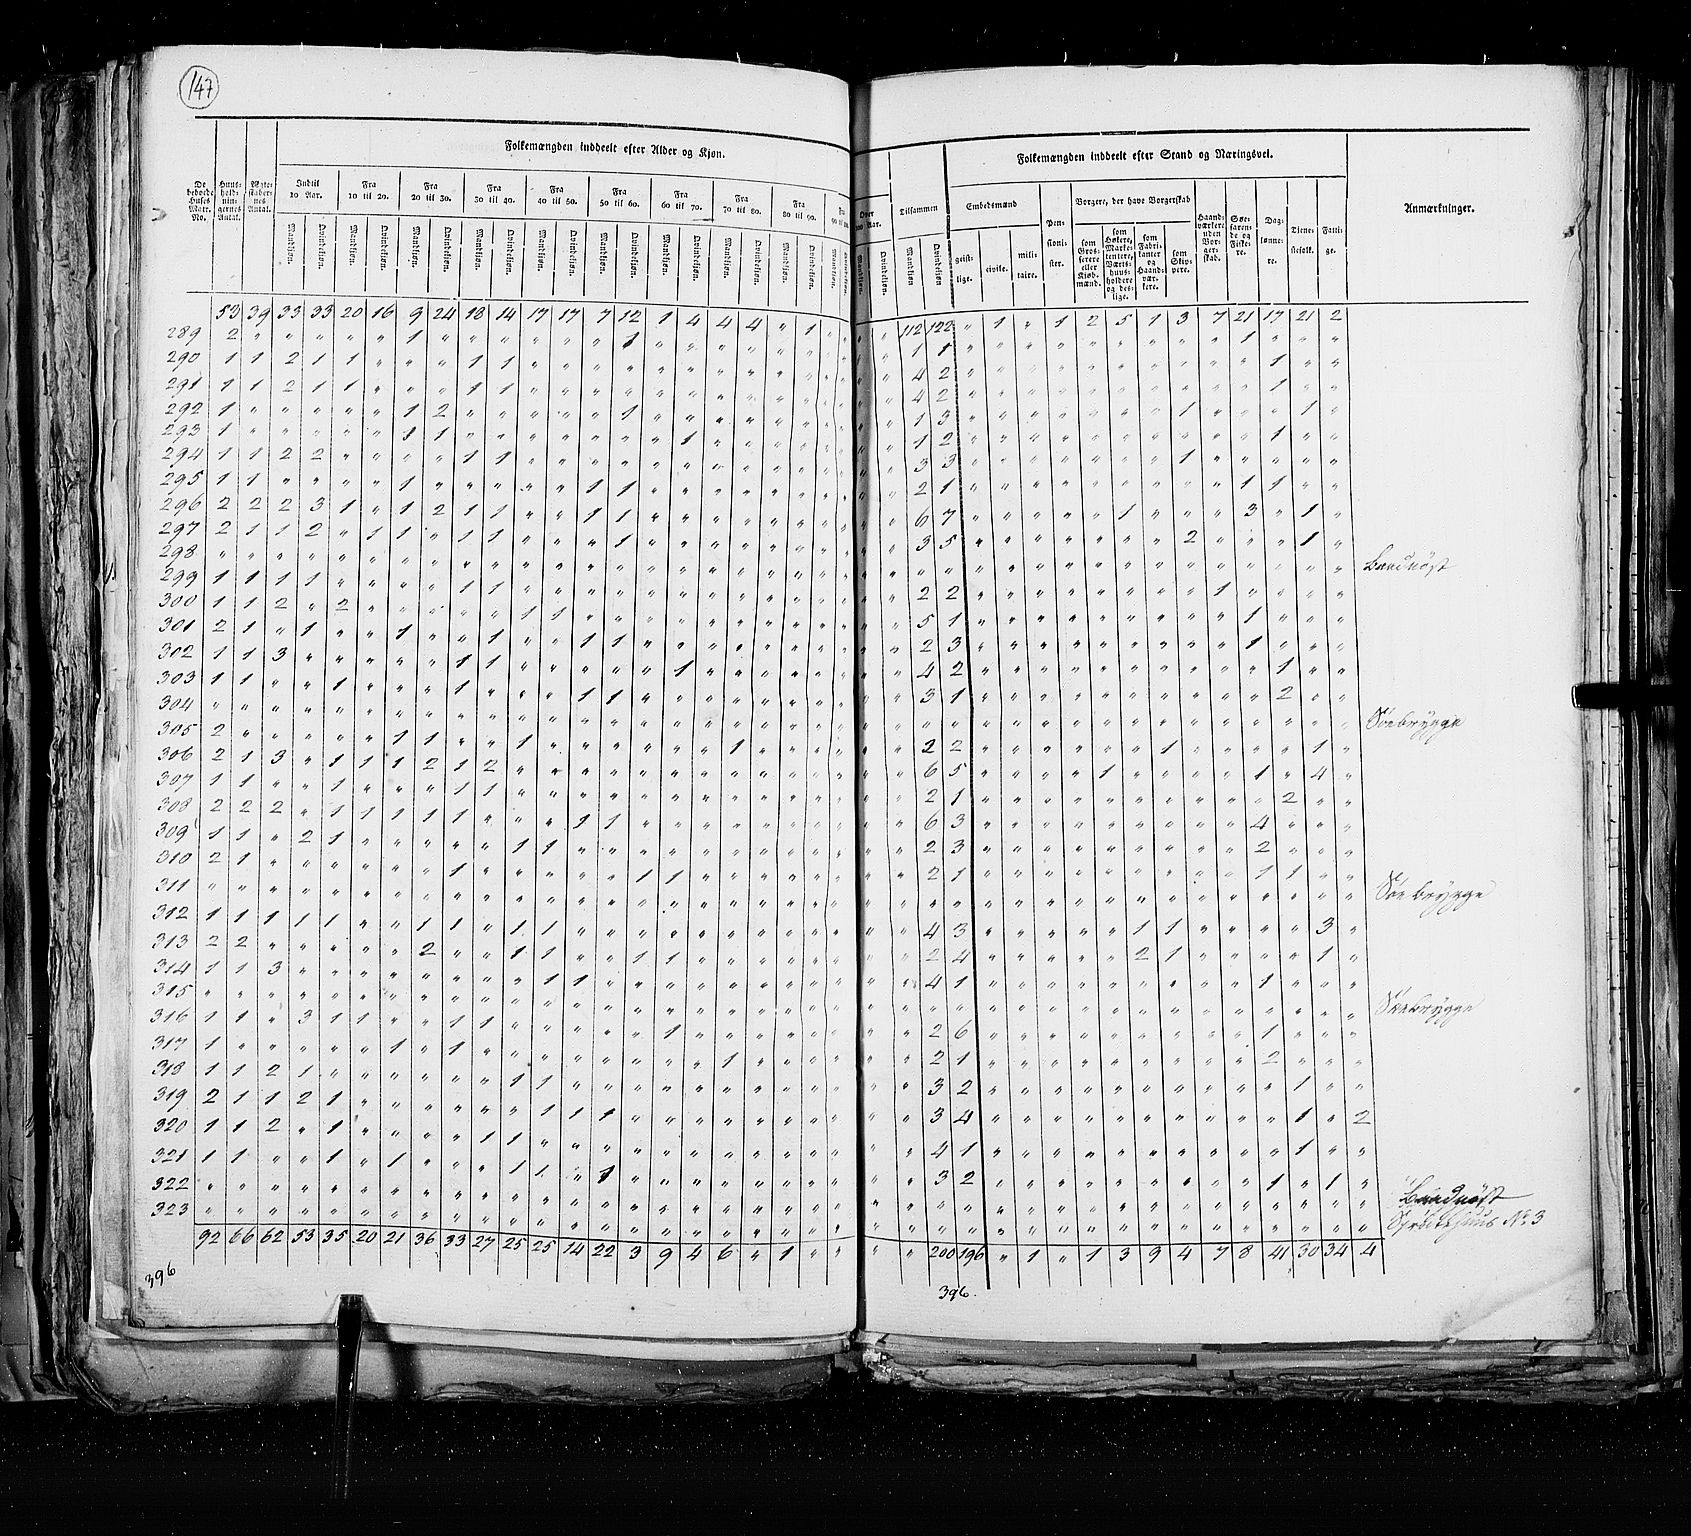 147
Folkemængden inddeelt efter Alder og Kjøn.
Folkemængden inddeelt efter Stand og Næringsvei.
De beboede Huses Matr. No. Huus-holdningernes Antal. Ægteskabernes Antal. Indtil 10 Aar. Fra 10 til 20. Fra 20 til 30. Fra 30 til 40. Fra 40 til 50. Fra 50 til 60. Fra 60 til 70. Fra 70 til 80. Fra 80 til 90. Fra Over 100 Aar. Tilsammen Embedsmænd Pensionister. Borgere, der have Borgerskab Haandværkere uden Borgerskab. Søefarende og Fiskere. Daglønnere. Tjenestefolk. Fattige. Anmærkninger.
Mandkjøn. Qvindekjøn. geistlige. civile. militaire. som Grosserere eller Kjøbmænd. som Høkere, Marketentere, Vertshuusholdere og deslige. som Fabrikanter og Haandværkere. som Skippere.
53 39 33 33 20 16 9 24 18 14 17 17 7 12 1 4 4 4 " 1 " " " 112 122 " 1 " 1 2 5 1 3 7 21 17 21 2
289 2 1 1 1 1 1
290 1 1 2 1 1 1 1 4 2 1
291 1 1 2 1 1 1 1 4 2 1
292 1 1 2 1 1 3 1 1
293 1 1 1 1 1 2 1
294 1 1 2 2 1 1 3 3 1
295 1 1 1 1 1 2 1 1 1
296 2 2 2 3 1 " 1 2 1 1 " " 1 1 6 7 1 3 1
297 2 1 1 2 " 1 1 " 1 1 1 3 5 2 1
298 Baadnøst
299 1 1 1 1 1 1 2 2 1
300 1 1 2 " 2 1 1 5 1 1
301 2 1 " 1 1 1 1 1 2 3 1
302 1 1 3 1 1 1 4 2 1
303 1 1 1 1 1 1 3 1 2
304 Søebrygge
305 2 1 1 1 1 2 2 1 1
306 2 1 3 " 1 1 1 2 1 2 6 5 1 1 4
307 1 1 1 1 1 2 1 2
308 2 2 2 " 1 1 1 1 1 1 1 6 3 4
309 1 1 " 2 1 1 1 2 3 2
310 2 1 1 1 1 2 1 1 1
311 Søebrygge
312 1 1 1 1 1 1 1 1 1 4 3 1 1 3
313 2 2 2 1 1 1 1 2 4 2 1 1
314 1 1 3 1 1 4 1 1
315 Søebrygge
316 1 1 " 3 1 1 1 1 1 2 6 1
317 1 1 1 1 2 1 2
318 1 1 2 1 1 1 3 2 1
319 2 1 1 2 1 1 1 1 3 4 1 " 2
320 1 1 2 " 1 1 1 4 1 1
321 1 1 1 1 1 1 1 3 2 1 1
322 Baadnøst
323 No. 3
92 66 62 53 35 20 21 36 33 27 25 25 14 22 3 9 4 6 " 1 " " " " 200 196 " 1 " 1 3 9 4 7 8 41 30 34 4
396
396.